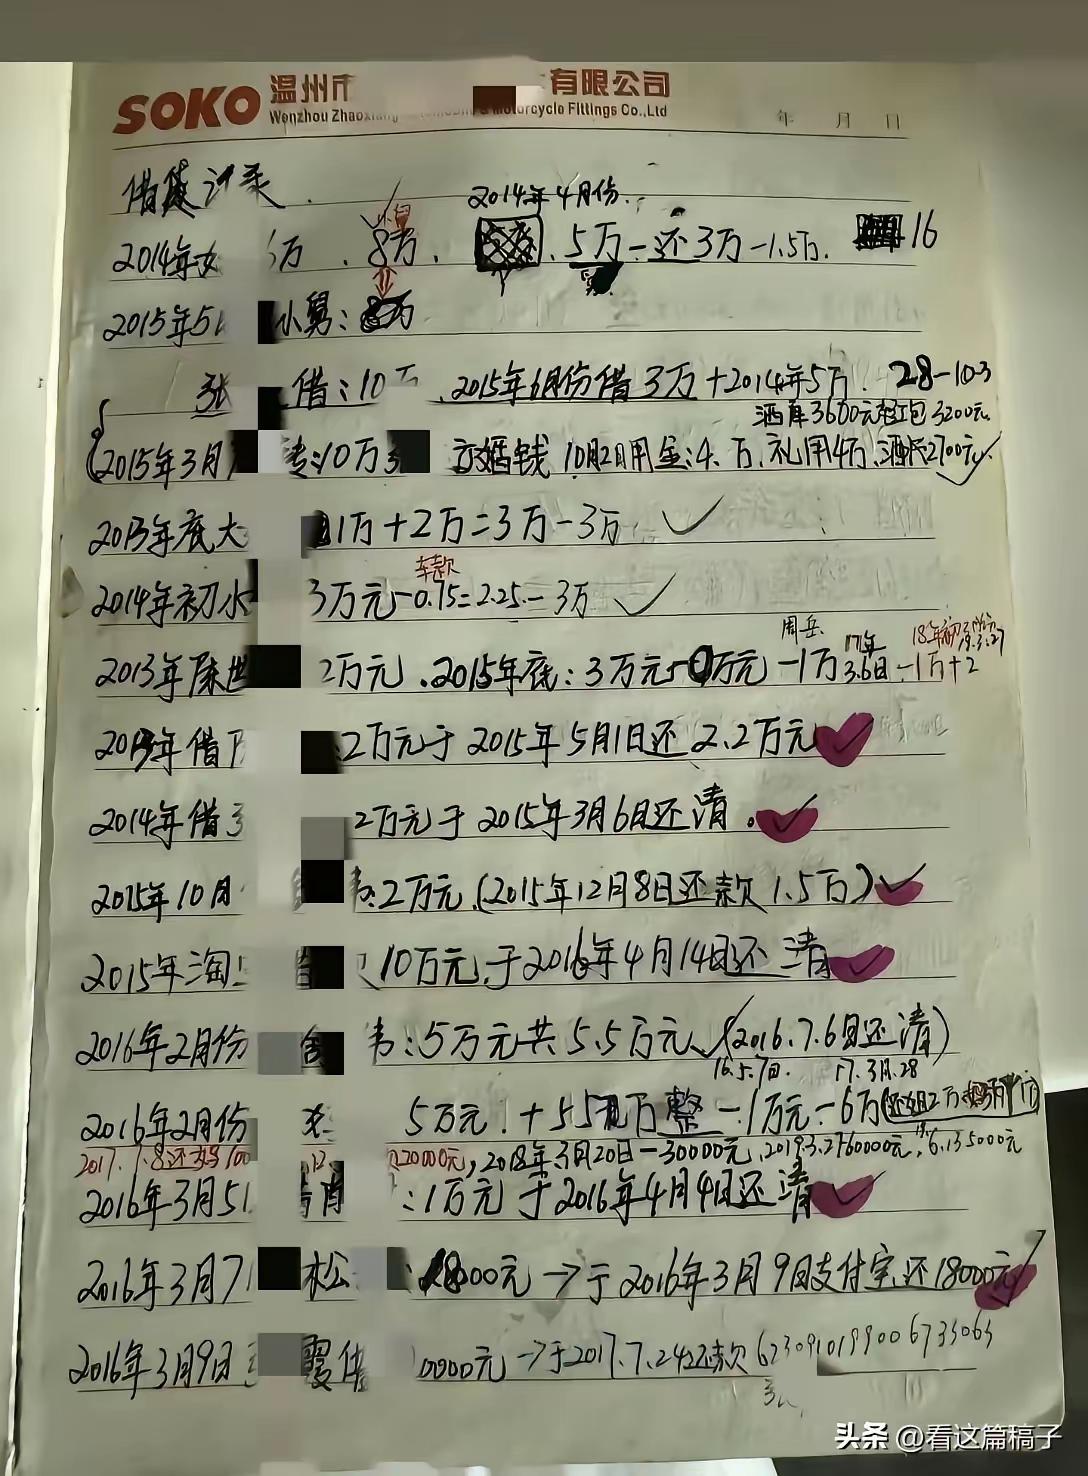 SOKO 温州市 有限公司
Wenzhou Zhaoxiang Motorcycle Fittings Co.,Ltd
年 月 日
借贷记录
2014年4月份
2014年 万 、8万、 、5万-还3万-1.5万. 16
2015年5 小舅:8万
张 借:10万 、2015年6月份借3万+2014年5万. 28-10-3
酒席3600元红包3200元
2015年3月 10万 订婚钱 10月2日用金:4.万、礼用4万、 2700元
2013年底大 1万+2万=3万-3万
车款
2014年初小 3万元-0.75=2.25-3万
周岳 17年 18年初
2013年陈世 2万元、2015年底:3万元- 万元-1万 3.6日-1万+2
2013年借 2万元于2015年5月1日还2.2万元
2014年借 2万元于2015年3月6日还清。
2015年10月 2万元(2015年12月8日还款1.5万)
2015年淘 借 10万元,于2016年4月14日还清
2016年2月份 5万元共5.5万元 (2016.7.6日还清)
16.5.7日. 17.3月.28
2016年2月份 5万元!+5.5 万整-1万元-6万
2017.7.8还妈100 .12. 20000元,2018年3月20日-30000元,2019.3.27 60000元, 6.13 5000元
2016年3月5 :1万元于2016年4月4日还清
2016年3月7 松 :18000元→于2016年3月9日支付宝还18000元
2016年3月9日 霞借 0000元→于2017.7.24还款 6230910199006733063
头条 @看这篇稿子